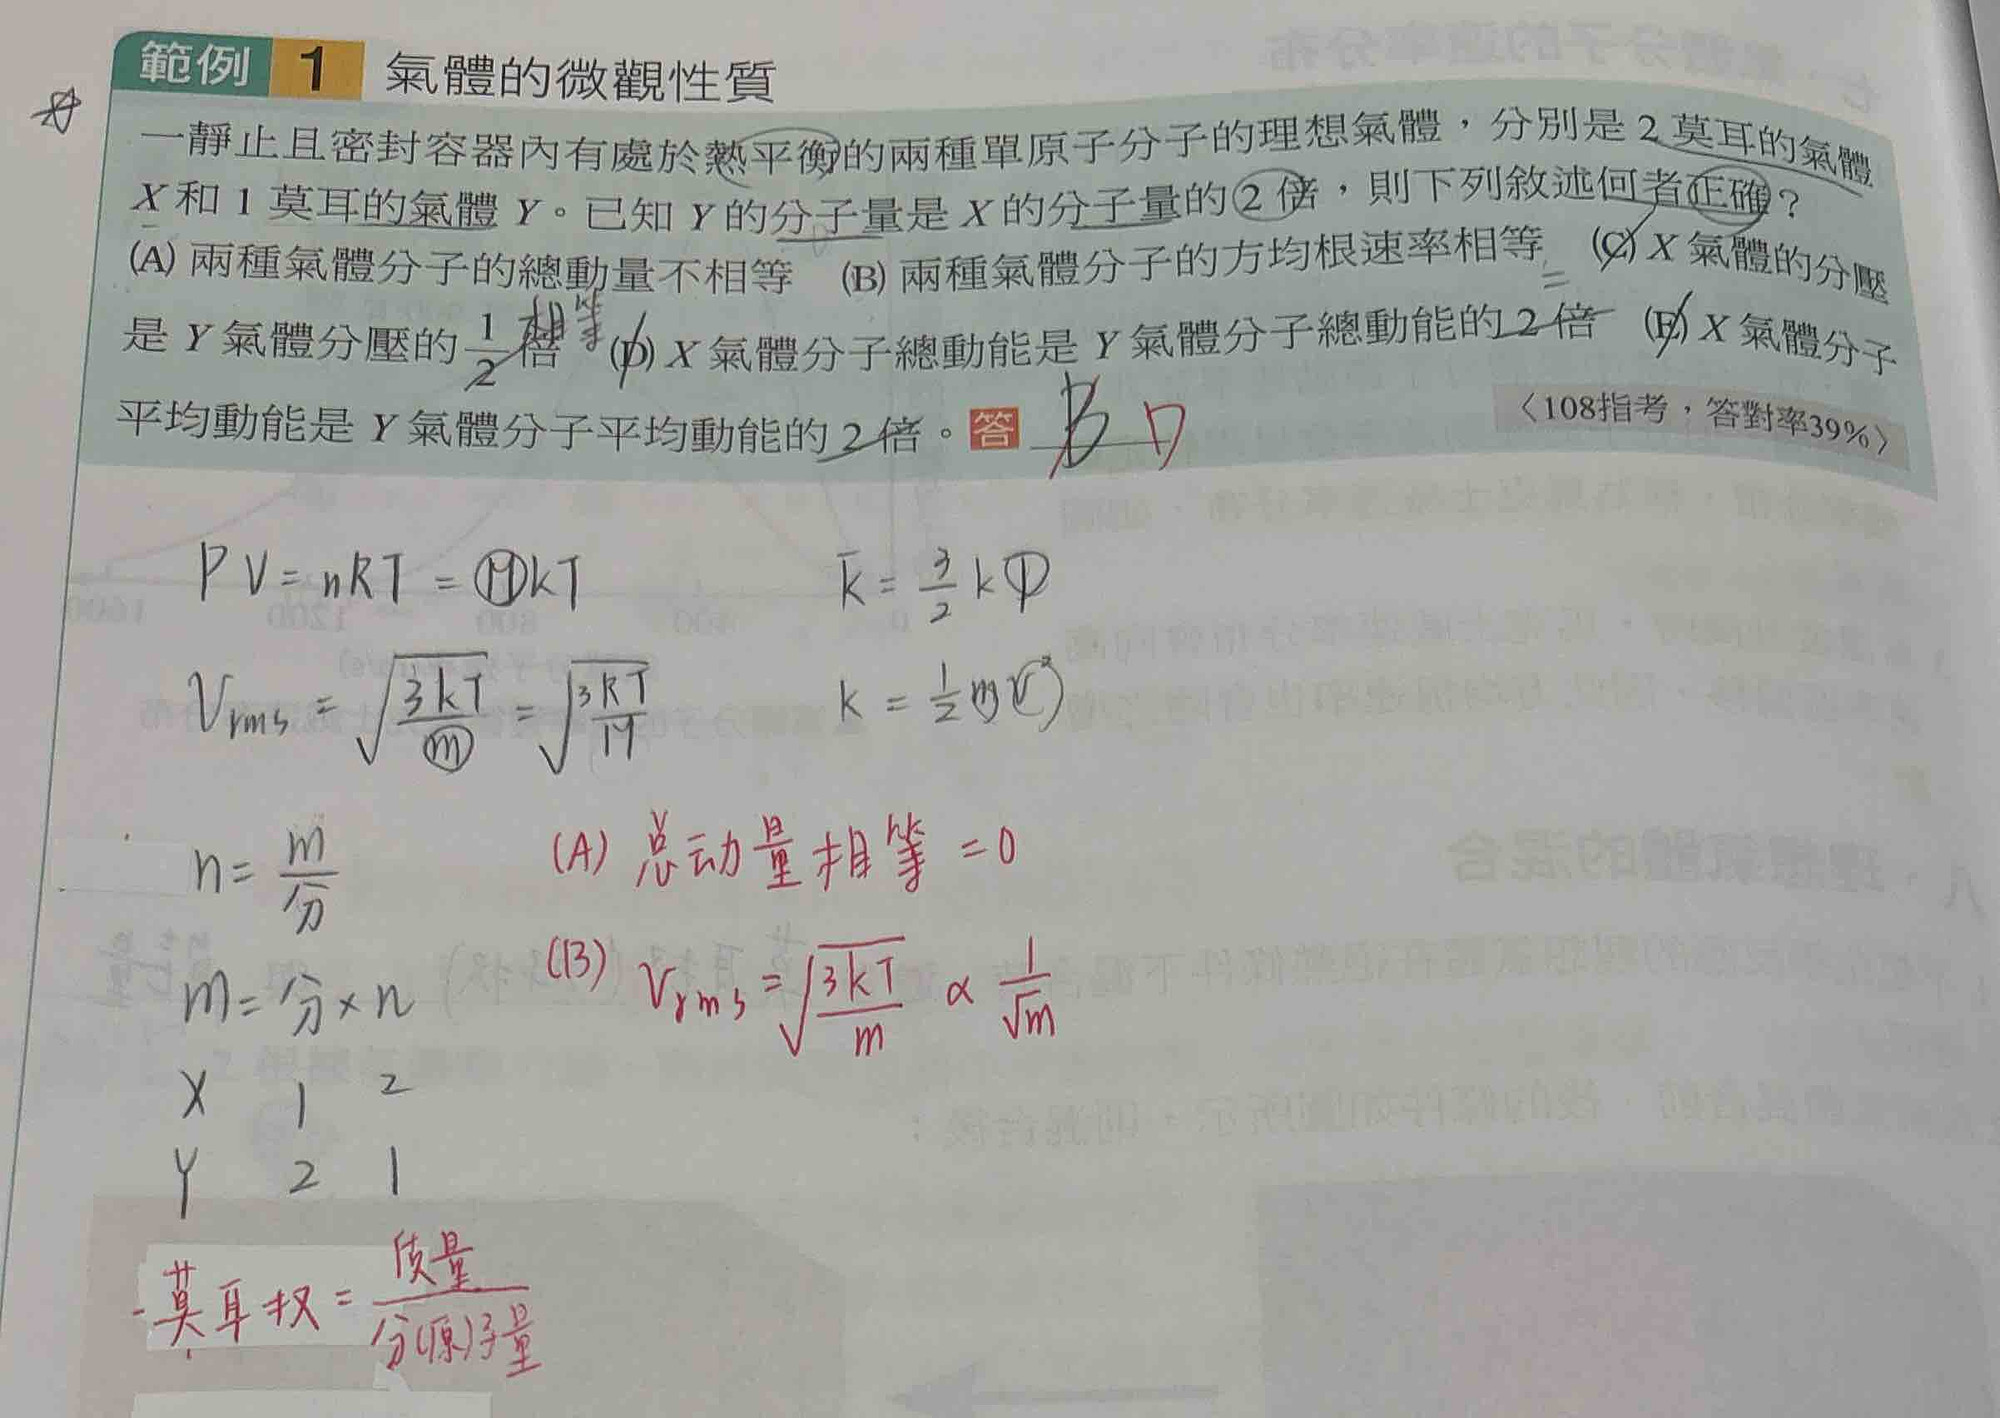 範例 1 氣體的微觀性質
一靜止且密封容器內有處於熱平衡的兩種單原子分子的理想氣體，分別是 2 莫耳的氣體
X 和 1 莫耳的氣體 Y。已知 Y 的分子量是 X 的分子量的 2 倍，則下列敘述何者正確？
(A) 兩種氣體分子的總動量不相等 (B) 兩種氣體分子的方均根速率相等 (C) X 氣體的分壓
相等
是 Y 氣體分壓的 1/2 倍 (D) X 氣體分子總動能是 Y 氣體分子總動能的 2 倍 (E) X 氣體分子
平均動能是 Y 氣體分子平均動能的 2 倍。答 B D 〈108指考，答對率39%〉
PV = nRT = NkT
k̄ = 3/2 kT
Vrms = √(3kT/m) = √(3RT/M)
k = 1/2 mv²
n = m/分
(A) 总动量相等 = 0
m = 分 × n
(B) Vrms = √(3kT/m) ∝ 1/√m
X 1 2
Y 2 1
莫耳数 = 质量/分(原)子量